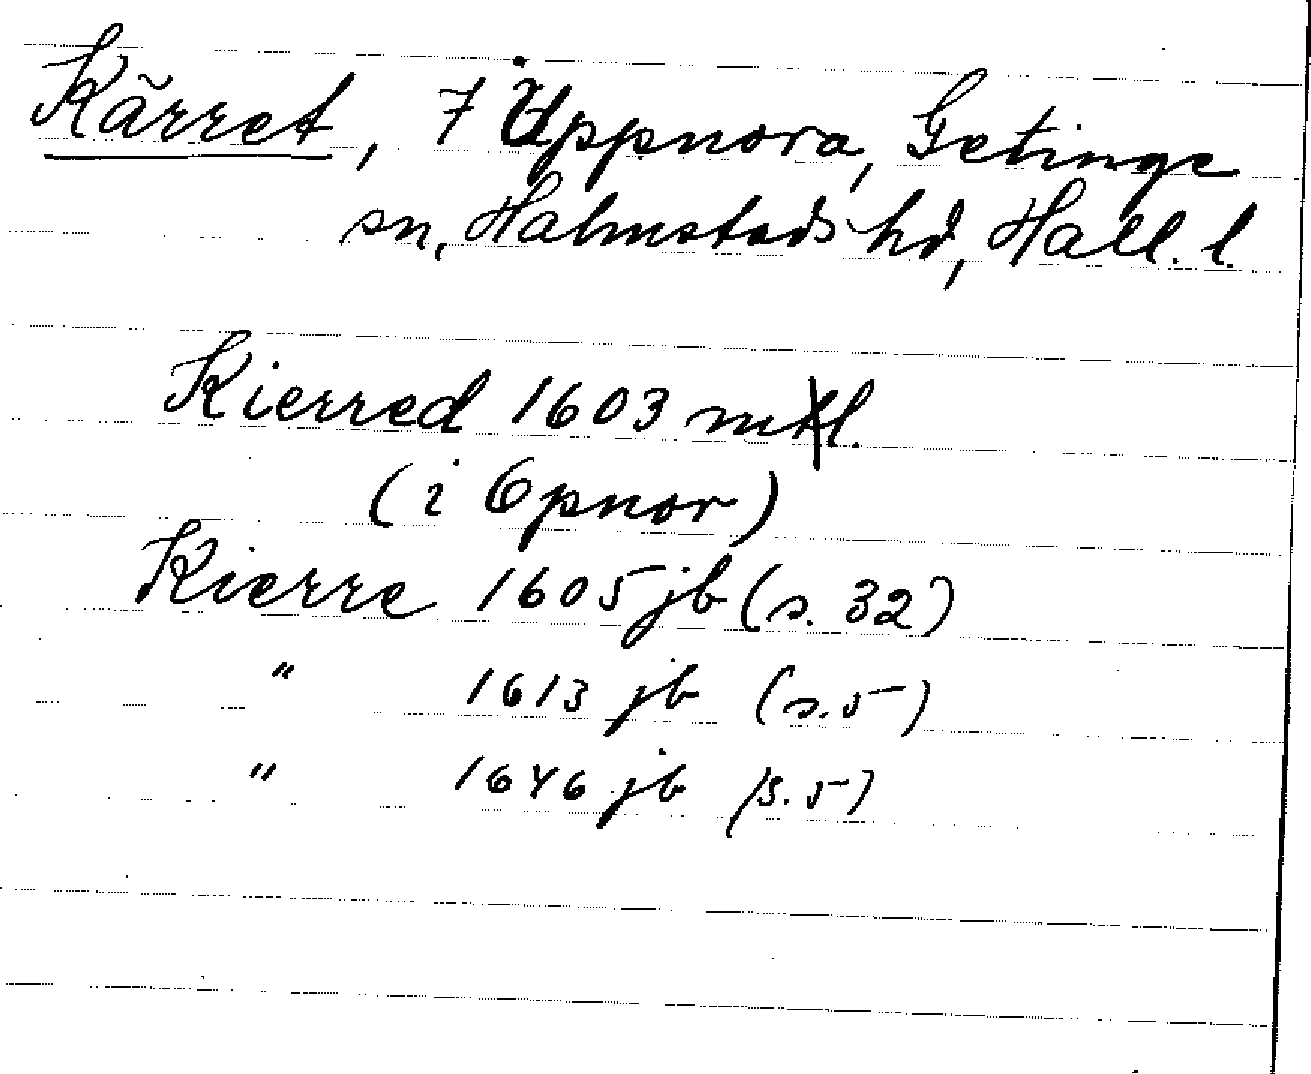 Kärret, 7 Uppnora, Getinge
sn, Halmstads hd, Hall. l.
Kierred 1603 mtl.
(i Opnor)
Kierre 1605 jb (s. 32)
" 1613 jb (s. 5)
" 1646 jb (s. 5)